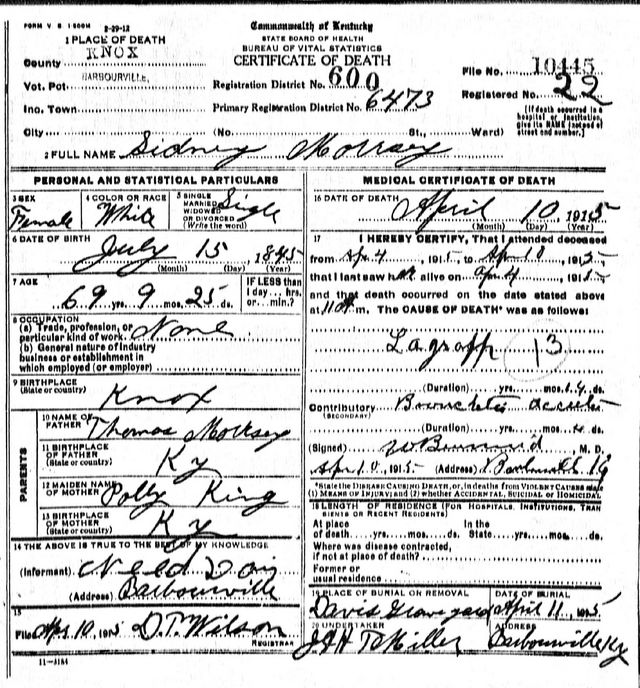 FORM V. S. 1 500M 2-29-12
Commonwealth of Kentucky
STATE BOARD OF HEALTH
BUREAU OF VITAL STATISTICS
CERTIFICATE OF DEATH
1 PLACE OF DEATH
County KNOX
Vot. Pct BARBOURVILLE,
Inc. Town
City (No. St., Ward)
Registration District No. 600
Primary Registration District No. 6473
File No. 10445
Registered No. 22
[If death occurred in a hospital or institution, give its NAME instead of street and number.]
2 FULL NAME Sidney
PERSONAL AND STATISTICAL PARTICULARS
3 SEX Female
4 COLOR OR RACE White
5 SINGLE MARRIED WIDOWED OR DIVORCED (Write the word) Sigle
6 DATE OF BIRTH July 15, 1845
(Month) (Day) (Year)
7 AGE 69 yrs. 9 mos. 25 ds.
IF LESS than 1 day.... hrs. or....min.?
8 OCCUPATION
(a) Trade, profession, or particular kind of work None
(b) General nature of Industry business or establishment in which employed (or employer)
9 BIRTHPLACE (State or country) Knox
PARENTS
10 NAME OF FATHER Thomas
11 BIRTHPLACE OF FATHER (State or country) Ky
12 MAIDEN NAME OF MOTHER Polly King
13 BIRTHPLACE OF MOTHER (State or country) Ky
14 THE ABOVE IS TRUE TO THE BEST OF MY KNOWLEDGE
(Informant)
(Address) Barbourville
15
Filed Apr 10, 1915 D.T. Wilson
REGISTRAR
11-3184
MEDICAL CERTIFICATE OF DEATH
16 DATE OF DEATH April 10 1915
(Month) (Day) (Year)
17 I HEREBY CERTIFY, That I attended deceased
from Apr 4, 1915, to Apr 10, 1915
that I last saw h alive on Apr 4, 1915
and that death occurred on the date stated above
at m. The CAUSE OF DEATH* was as follows:
13
(Duration) yrs. mos. ds.
Contributory
(SECONDARY)
(Duration) yrs. mos. ds.
(Signed) M. D.
Apr 10, 1915 (Address)
*State the DISEASE CAUSING DEATH, or, in deaths from VIOLENT CAUSES state (1) MEANS OF INJURY; and (2) whether ACCIDENTAL, SUICIDAL or HOMICIDAL
18 LENGTH OF RESIDENCE (FOR HOSPITALS, INSTITUTIONS, TRANSIENTS OR RECENT RESIDENTS)
At place of death yrs. mos. ds. In the State yrs. mos. ds.
Where was disease contracted, if not at place of death?
Former or usual residence
19 PLACE OF BURIAL OR REMOVAL Davis Graveyard
DATE OF BURIAL April 11, 1915
20 UNDERTAKER Miller
ADDRESS Barbourville Ky